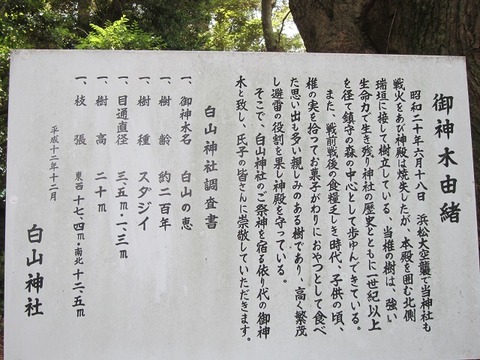 御神木由緒
昭和二十年六月十八日　浜松大空襲で当神社も
戦火をあび神殿は焼失したが、本殿を囲む北側
瑞垣に接して樹立している、当椎の樹は、強い
生命力で生き残り神社の歴史とともに一世紀以上
を径て鎮守の森の中心として歩ゆんできている。
また、戦前戦後の食糧乏しき時代、子供の頃。
椎の実を拾ってお菓子がわりにおやつとして食べ
た思い出も多い親しみのある樹であり、高く繁茂
し避雷の役割を果し神殿を守っている。
そこで、白山神社のご祭神を宿る依り代の御神
木と致し、氏子の皆さんに崇敬していただきます。
白山神社調査書
一、御神木名　白山の恵
一、樹齢　約二百年
一、樹種　スダジイ
一、目通直径　三、五m・一、三m
一、樹高　二十m
一、枝張　東西 十七、四m・南北 十二、五m
平成十二年十二月
白山神社